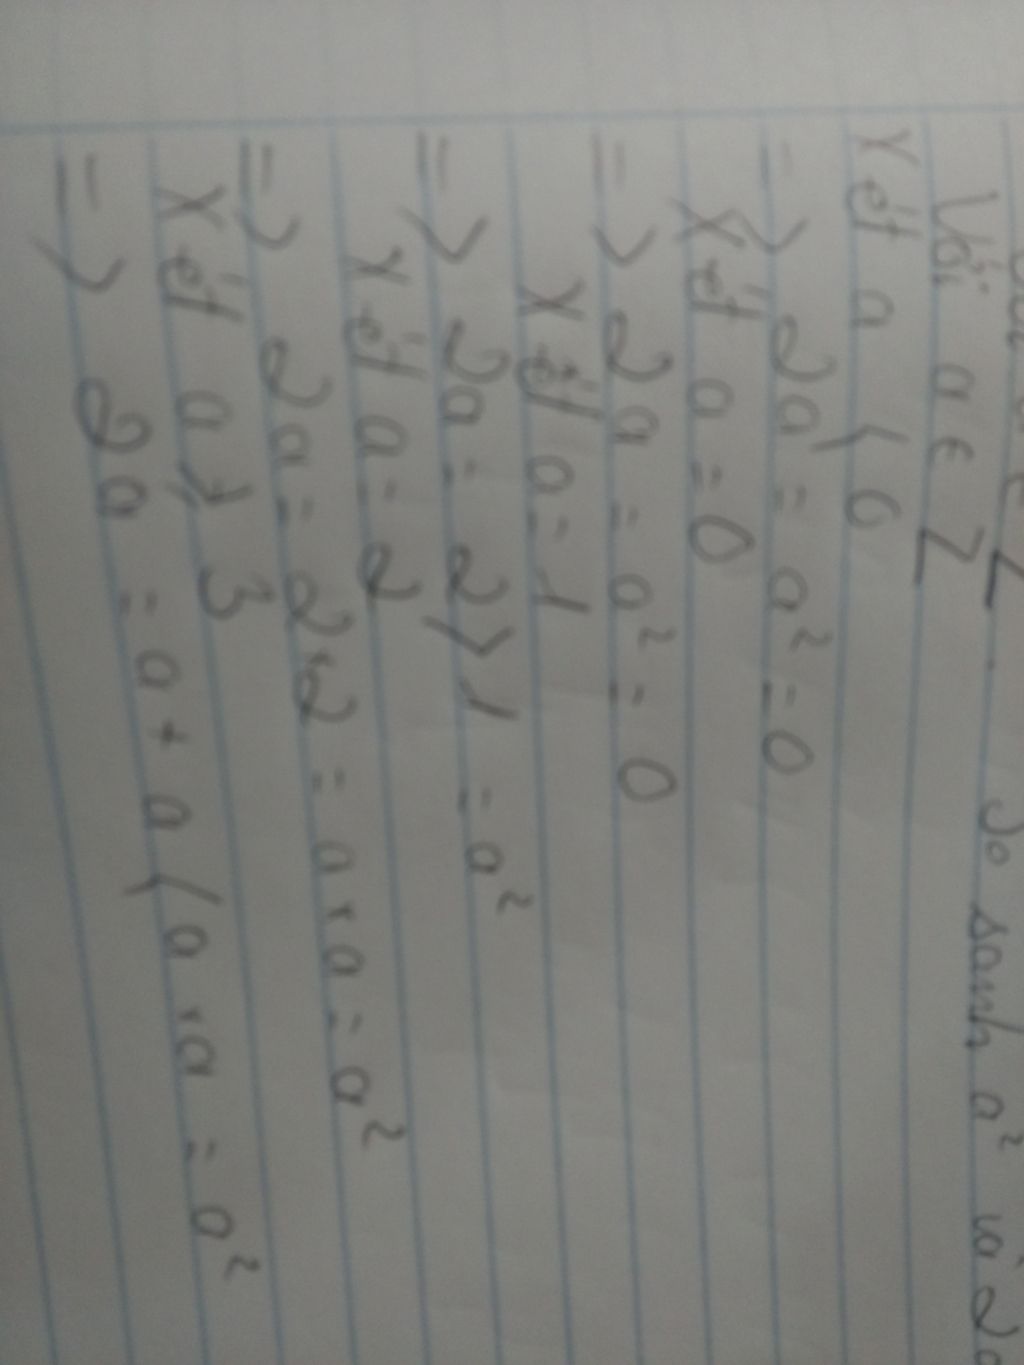 So sanh a² và 2a
Với a ∈ Z
Xét a < 0
=> 2a = a² = 0
Xét a = 0
=> 2a = a² = 0
Xét a = 1
=> 2a = 2 > 1 = a²
Xét a = 2
=> 2a = 2 × 2 = a × a = a²
Xét a > 3
=> 2a = a + a < a × a = a²